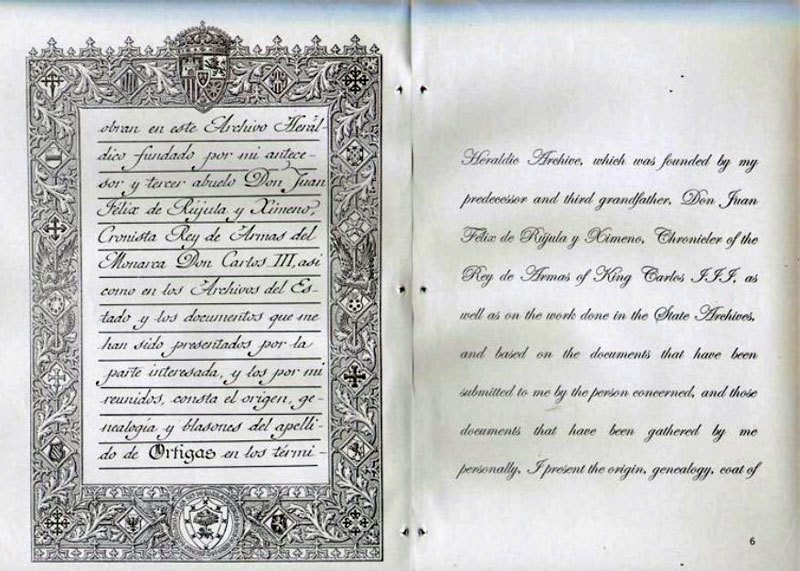 obran en este Archivo Herál-
dico fundado por mi antece-
sor y tercer abuelo Don Juan
Félix de Rújula y Ximeno,
Cronista Rey de Armas del
Monarca Don Carlos III, así
como en los Archivos del Es-
tado y los documentos que me
han sido presentados por la
parte interesada, y los por mi
reunidos, consta el origen, ge-
nealogía y blasones del apelli-
do de Ortigas en los térmi-
Heraldic Archive, which was founded by my
predecessor and third grandfather, Don Juan
Félix de Rújula y Ximeno, Chronicler of the
Rey de Armas of King Carlos III, as
well as on the work done in the State Archives,
and based on the documents that have been
submitted to me by the person concerned, and those
documents that have been gathered by me
personally, I present the origin, genealogy, coat of
6